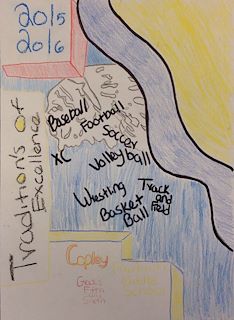 2015
2016
Tradition's of
Excellence
Baseball
Football
Soccer
XC
Volleyball
Wresting
Track
and
Field
Basket
Ball
Copley
Grades
Fifth
Sixth